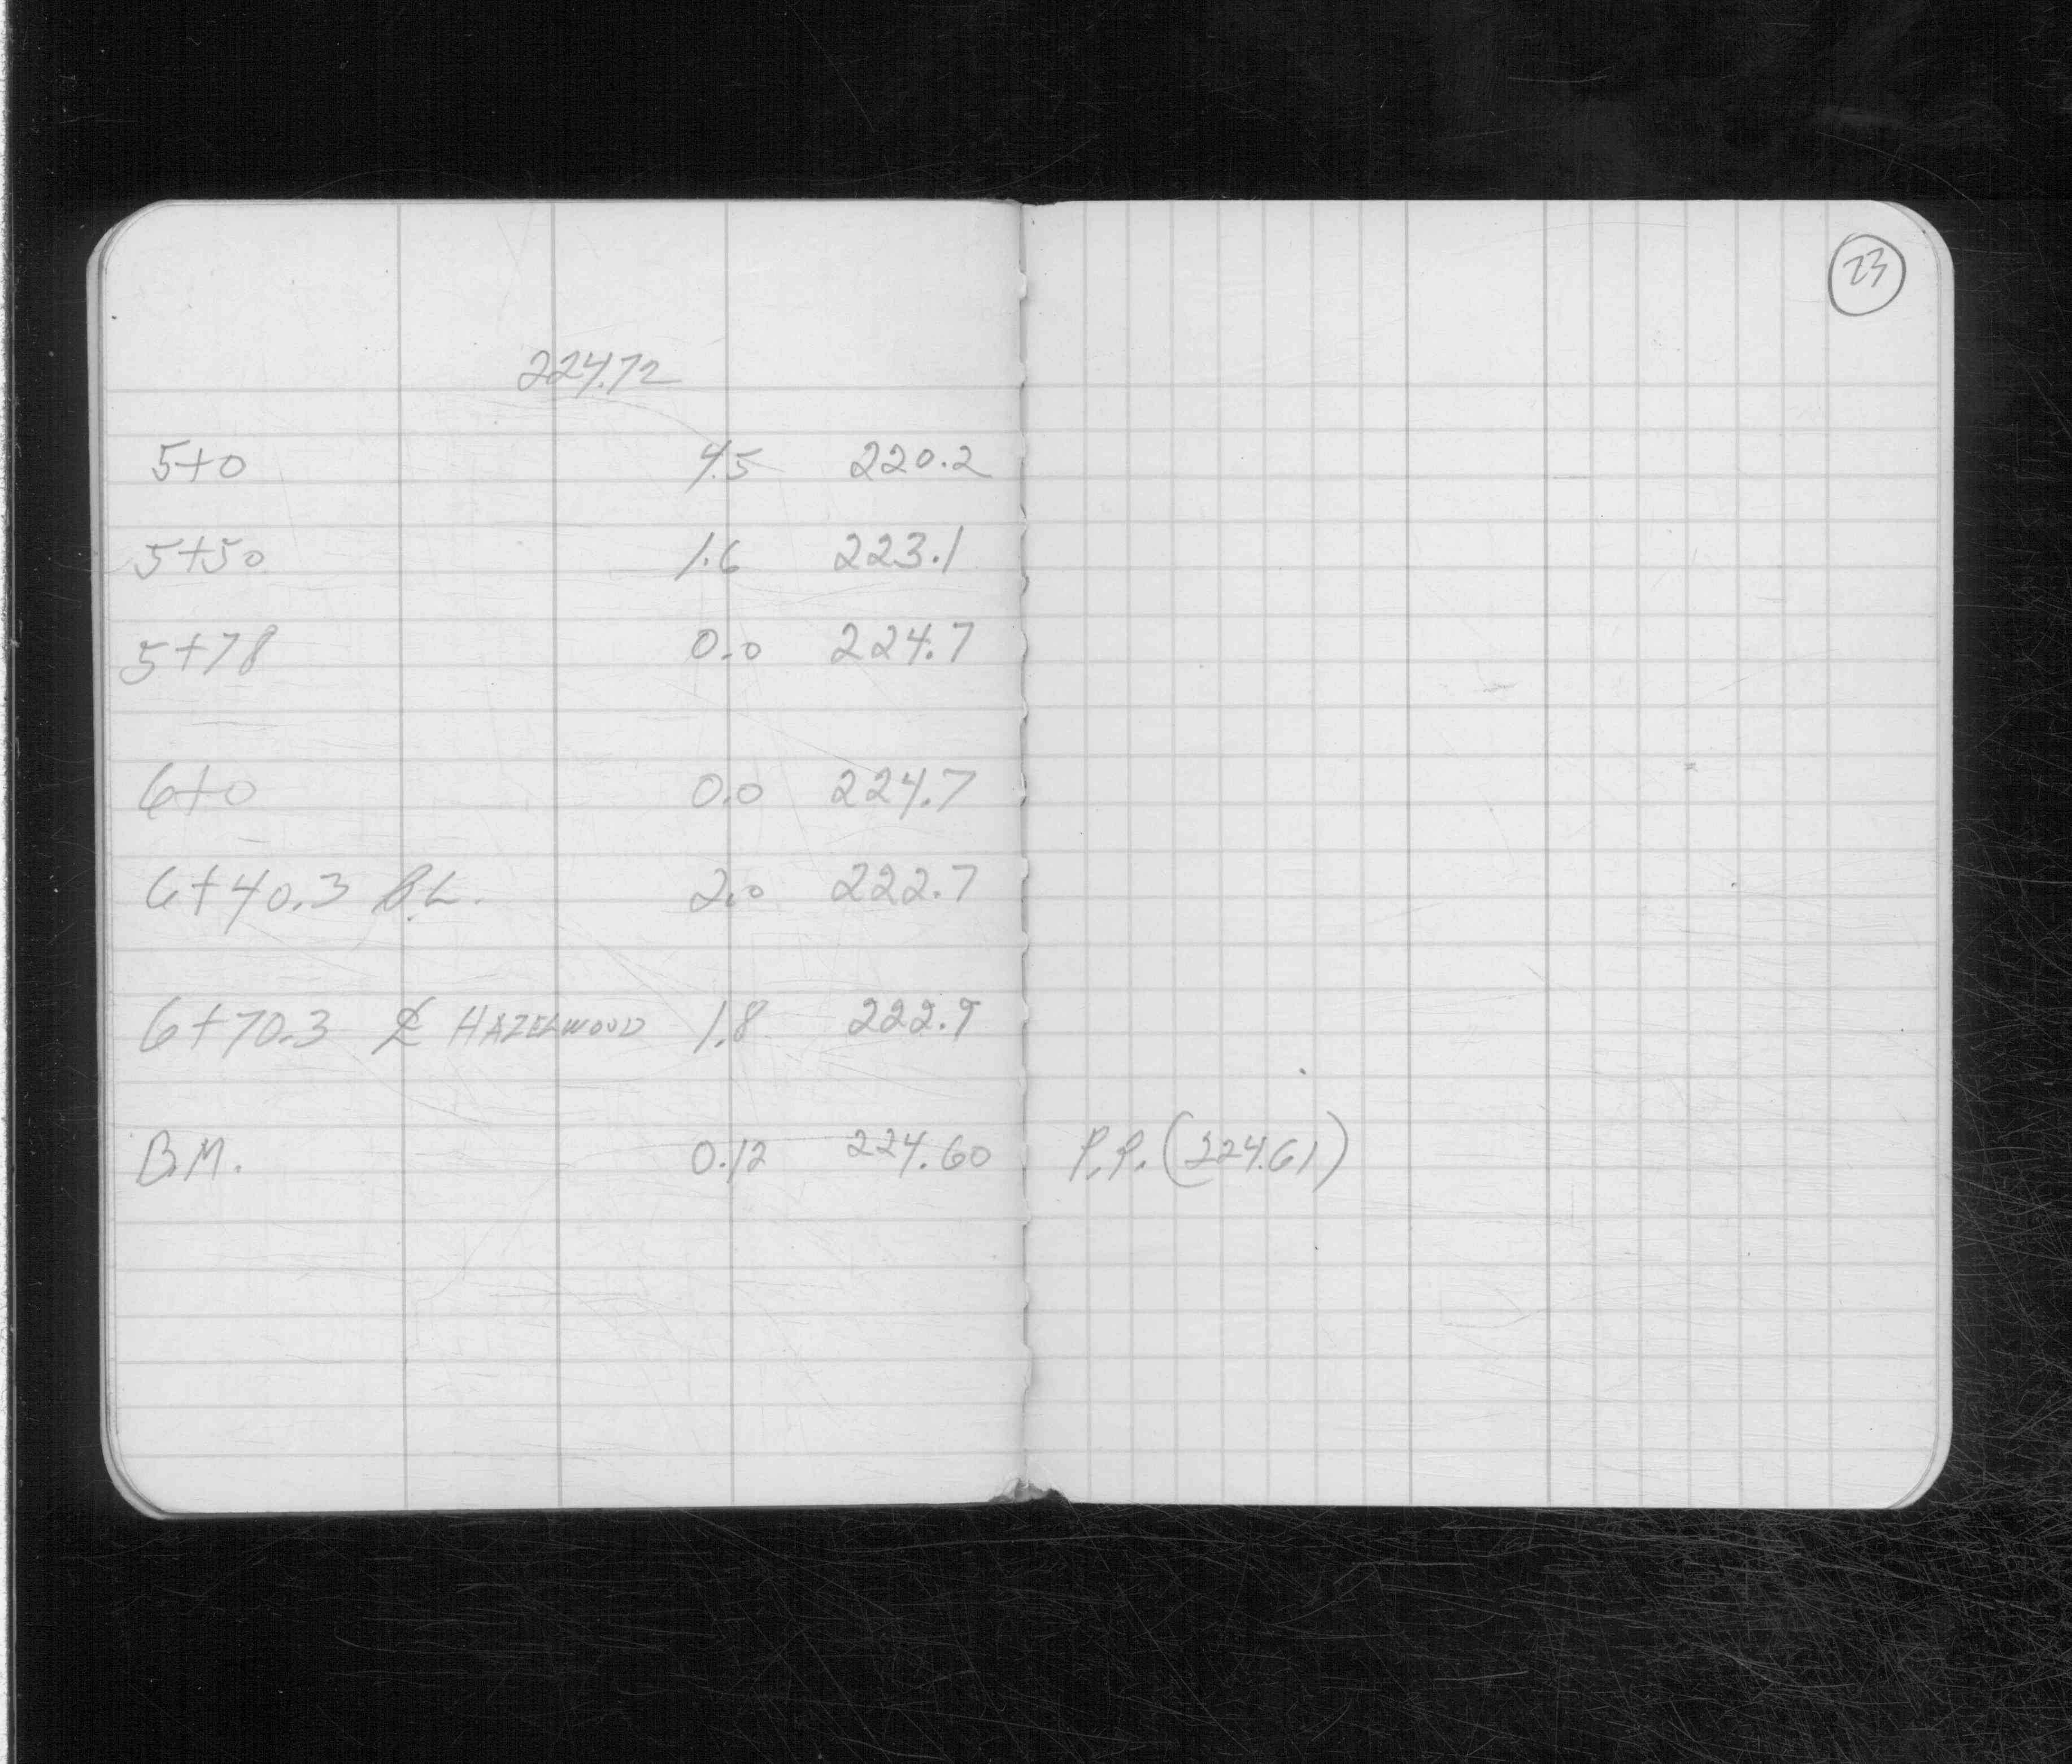 23
224.72
5+0 4.5 220.2
5+50 1.6 223.1
5+78 0.0 224.7
6+0 0.0 224.7
6+40.3 B.L. 2.0 222.7
6+70.3 ℄ HAZELWOOD 1.8 222.9
B.M. 0.12 224.60 P.P. (224.61)